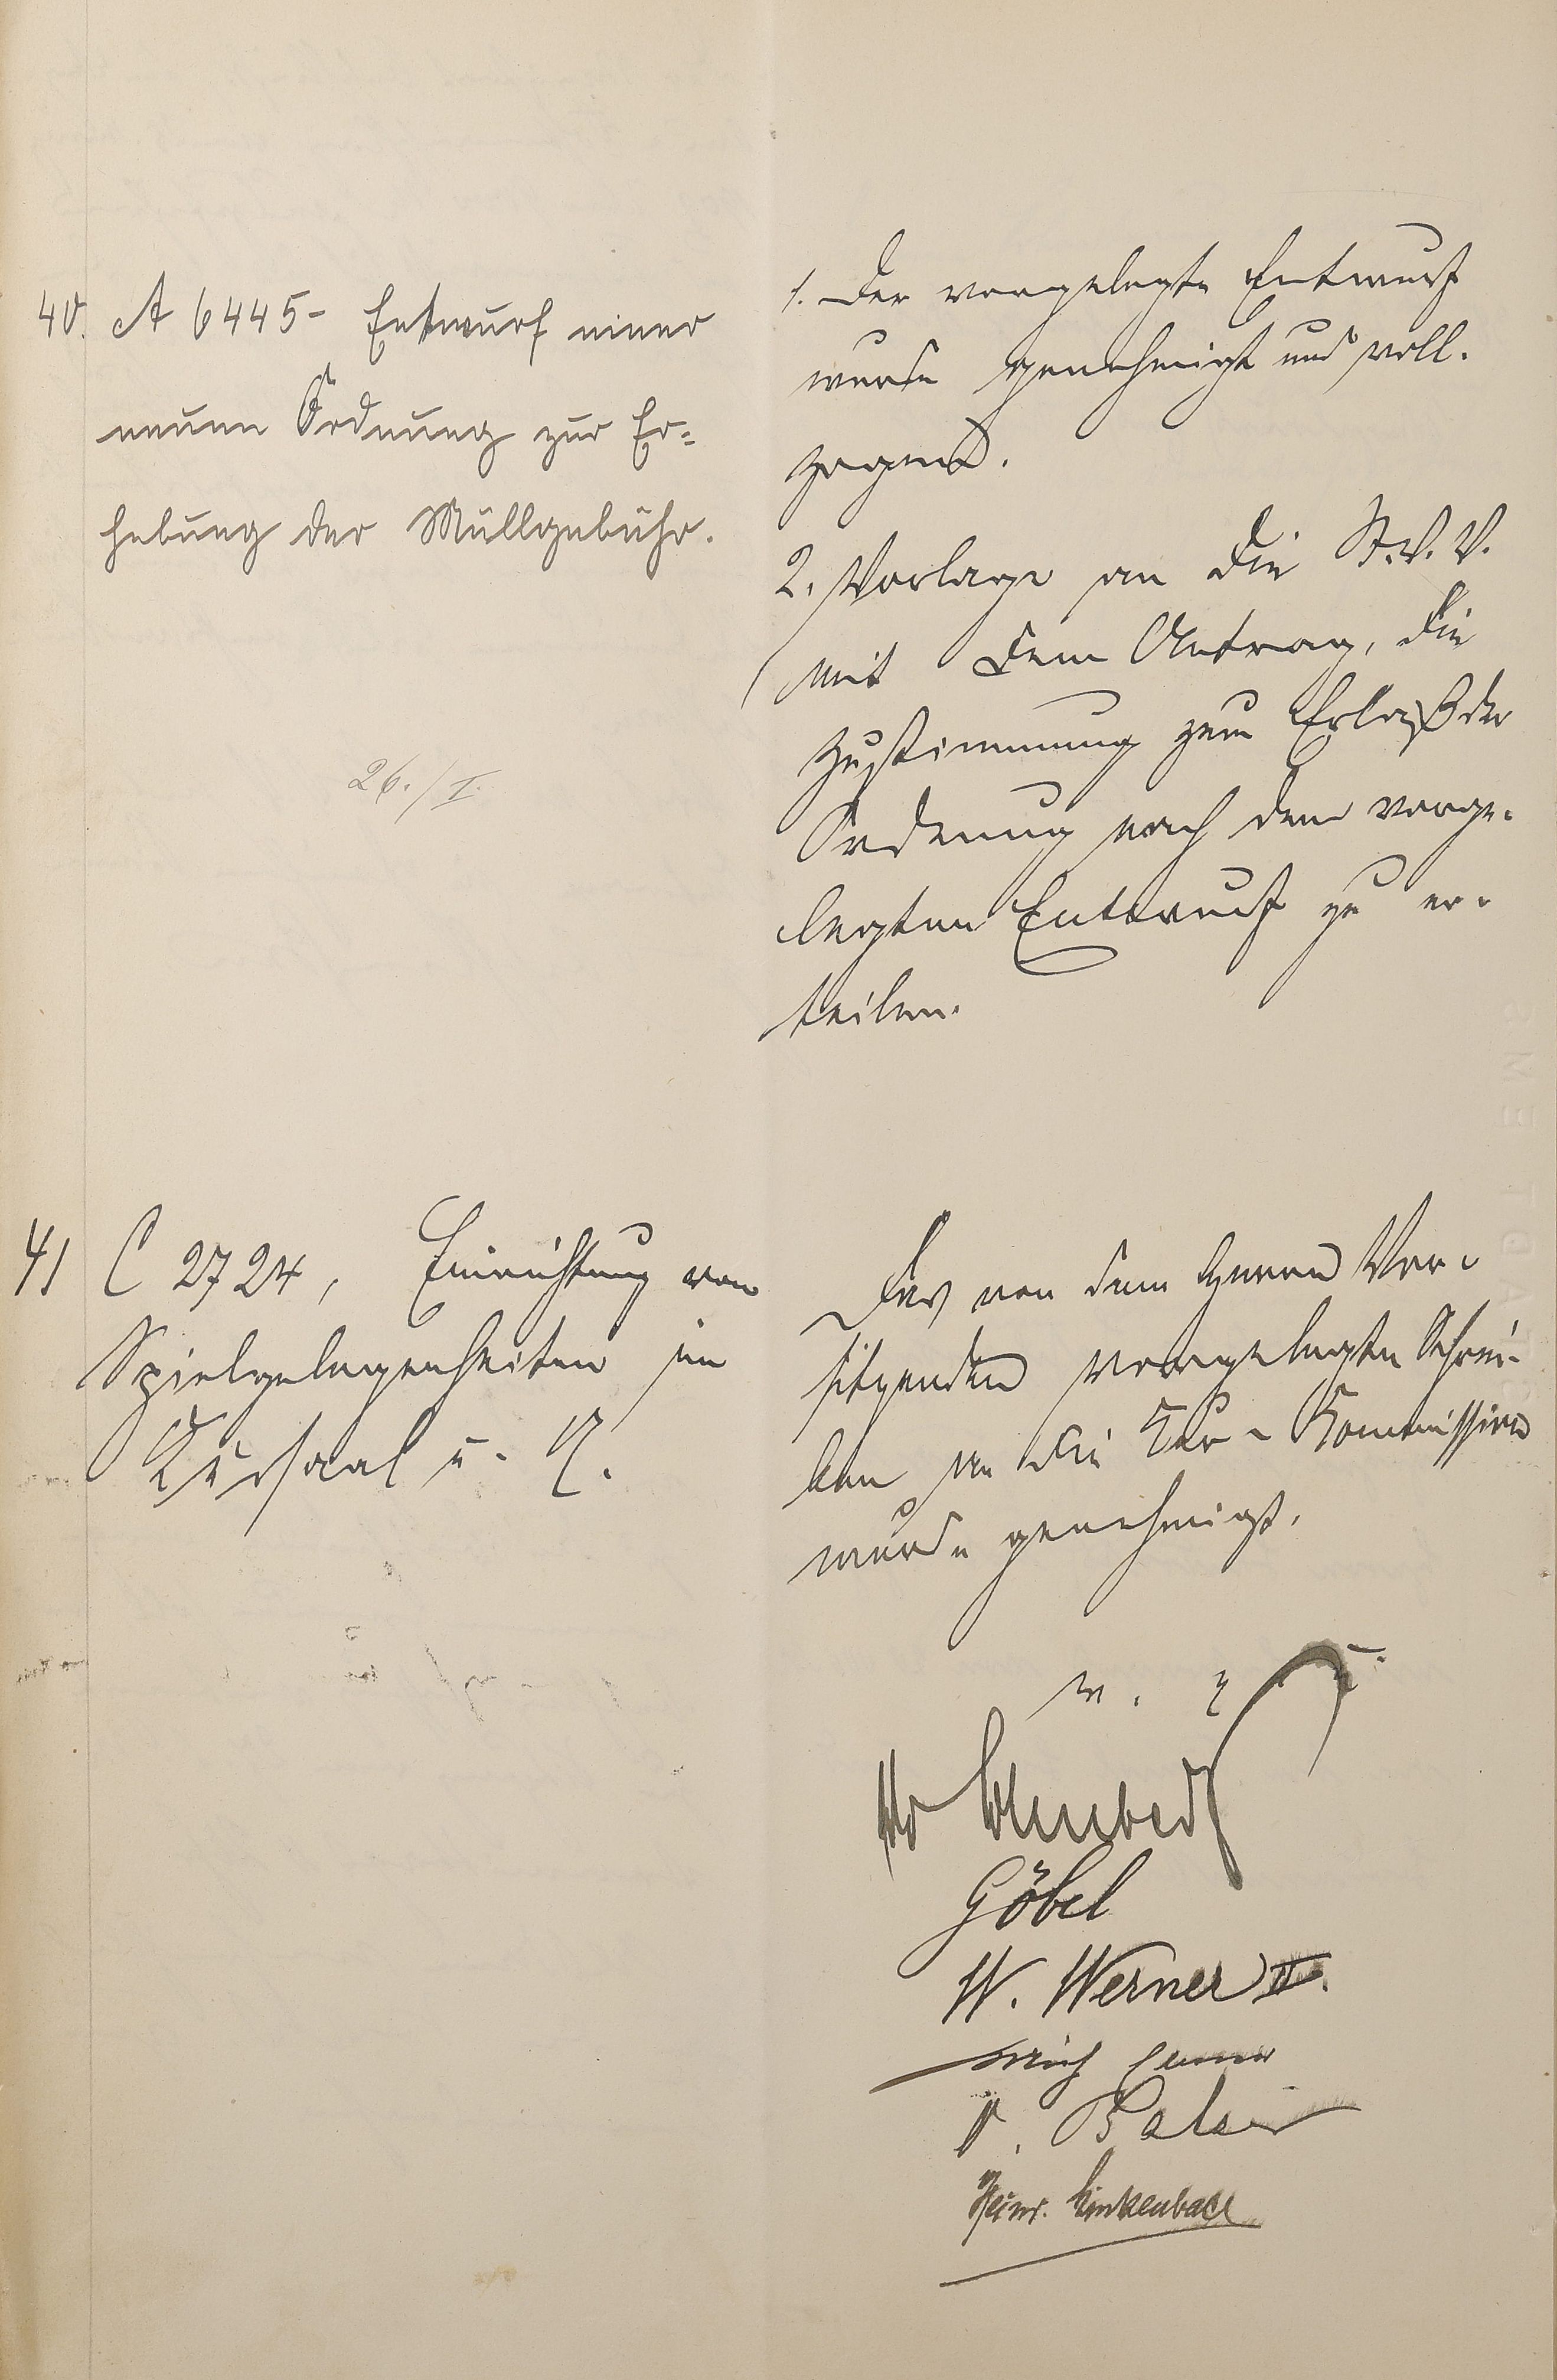 40. A 6445 - Entwurf einer
neuen Ordnung zur Er-
hebung der Müllgebühr.
26./I.
1. Der vorgelegte Entwurf
wurde genehmigt und voll-
zogen.
2. Vorlage an die St.V.V.
mit dem Antrag, die
Zustimmung zum Erlaß der
Ordnung nach dem vorge-
legten Entwurf zu er-
teilen.
41 C 2724, Einrichtung von
Spielgelegenheiten im
Kursaal
Das von dem Herrn Vor-
sitzenden vorgelegte Schrei-
ben an die Kur-Kommission
wurde genehmigt.
Göbel
W. Werner II.
Heinr.